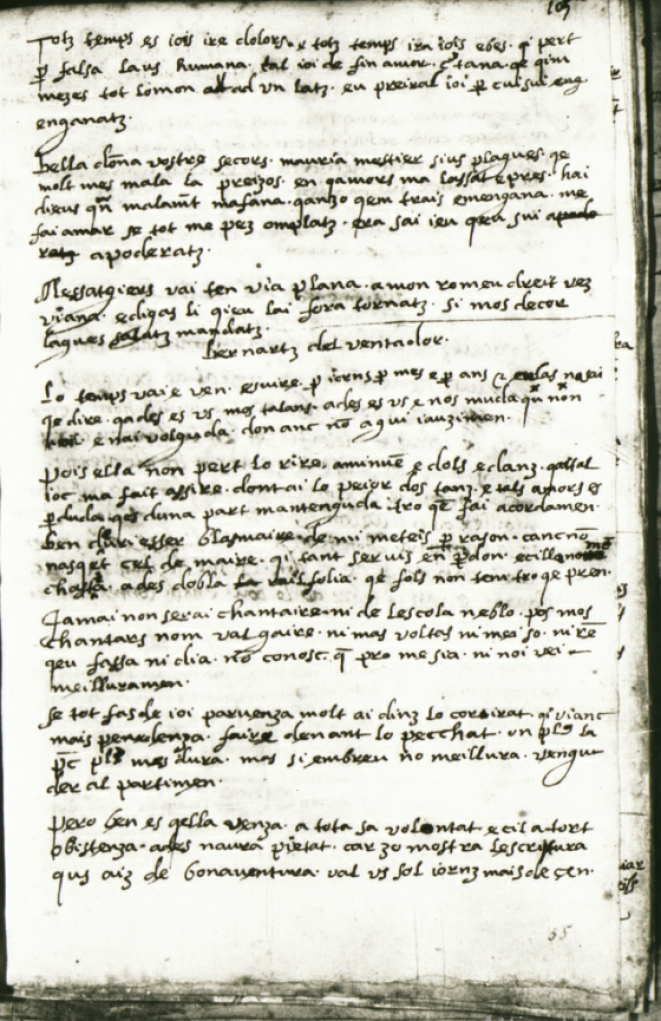 109
Totz temps es iois ire dolors. e totz temps ira iois e bes. qi pert
p falsa laus humana. tal ioi de fin amor. çtana. qe qim
mezes tot lomon ad un latz. eu preiral ioi p cui sui eng
enganatz.
Bella dona vostre secors. mauria mestier sius plagues. qe
molt mes mala la preizos. en qamors ma lassat e pres. hai
dieus qn malamt mafana. qanzo qem trais emengana. me
fai amar se tot me pez omplatz. era sai ieu qeu sui apode
ratz apoderatz.
Messatgiers vai ten via plana. a mon romeu dreit vez
viana. e digas li qieu lai fora tornatz. si mos decor
laques salutz mandatz.
bernartz del ventador.
Lo temps vai e ven. e suire. p iorns p mes e p ans en las no sai
qe dire. qades es us mos talans. ades es us e nos muda qn non
e nai volguda. don anc no agui iauzimen.
Pois ella non pert lo rire. amin uen e dols e danz. qatal
ioc ma fait assire. dont ai lo peior dos tanz. e tals amors es
pduda. qes duna part mantenguda. tro qe fai acordamen.
Ben deuri esser blasmaire. de mi meteis p rason. canc no
nasqet cel de maire. qi tant servis en pdon. e cill no me
chastia. ades dobla folia. qe fols non tem tro qe pren.
Jamai non serai chantaire. ni de lescola neblo. pos mos
chantars nom val gaire. ni mas voltas ni mei so. ni re
qeu fassa ni dia. no conosc. q pro me sia. ni noi vei
meilluramen.
Se tot fas de ioi parvenza molt ai dinz lo cor irat. qi vi anc
mais penedenza. faire denant lo pecchat. on pls la
pc pls mes dura. mas si em breu no meillura. vengut
der al partimen.
Pero ben es qella venza. a tota sa volontat. e cil a tort
o bistenza. ades naura pietat. car zo mostra lescriptura
qus aiz de bonaventura. val us sol iornz mais de çen.
55